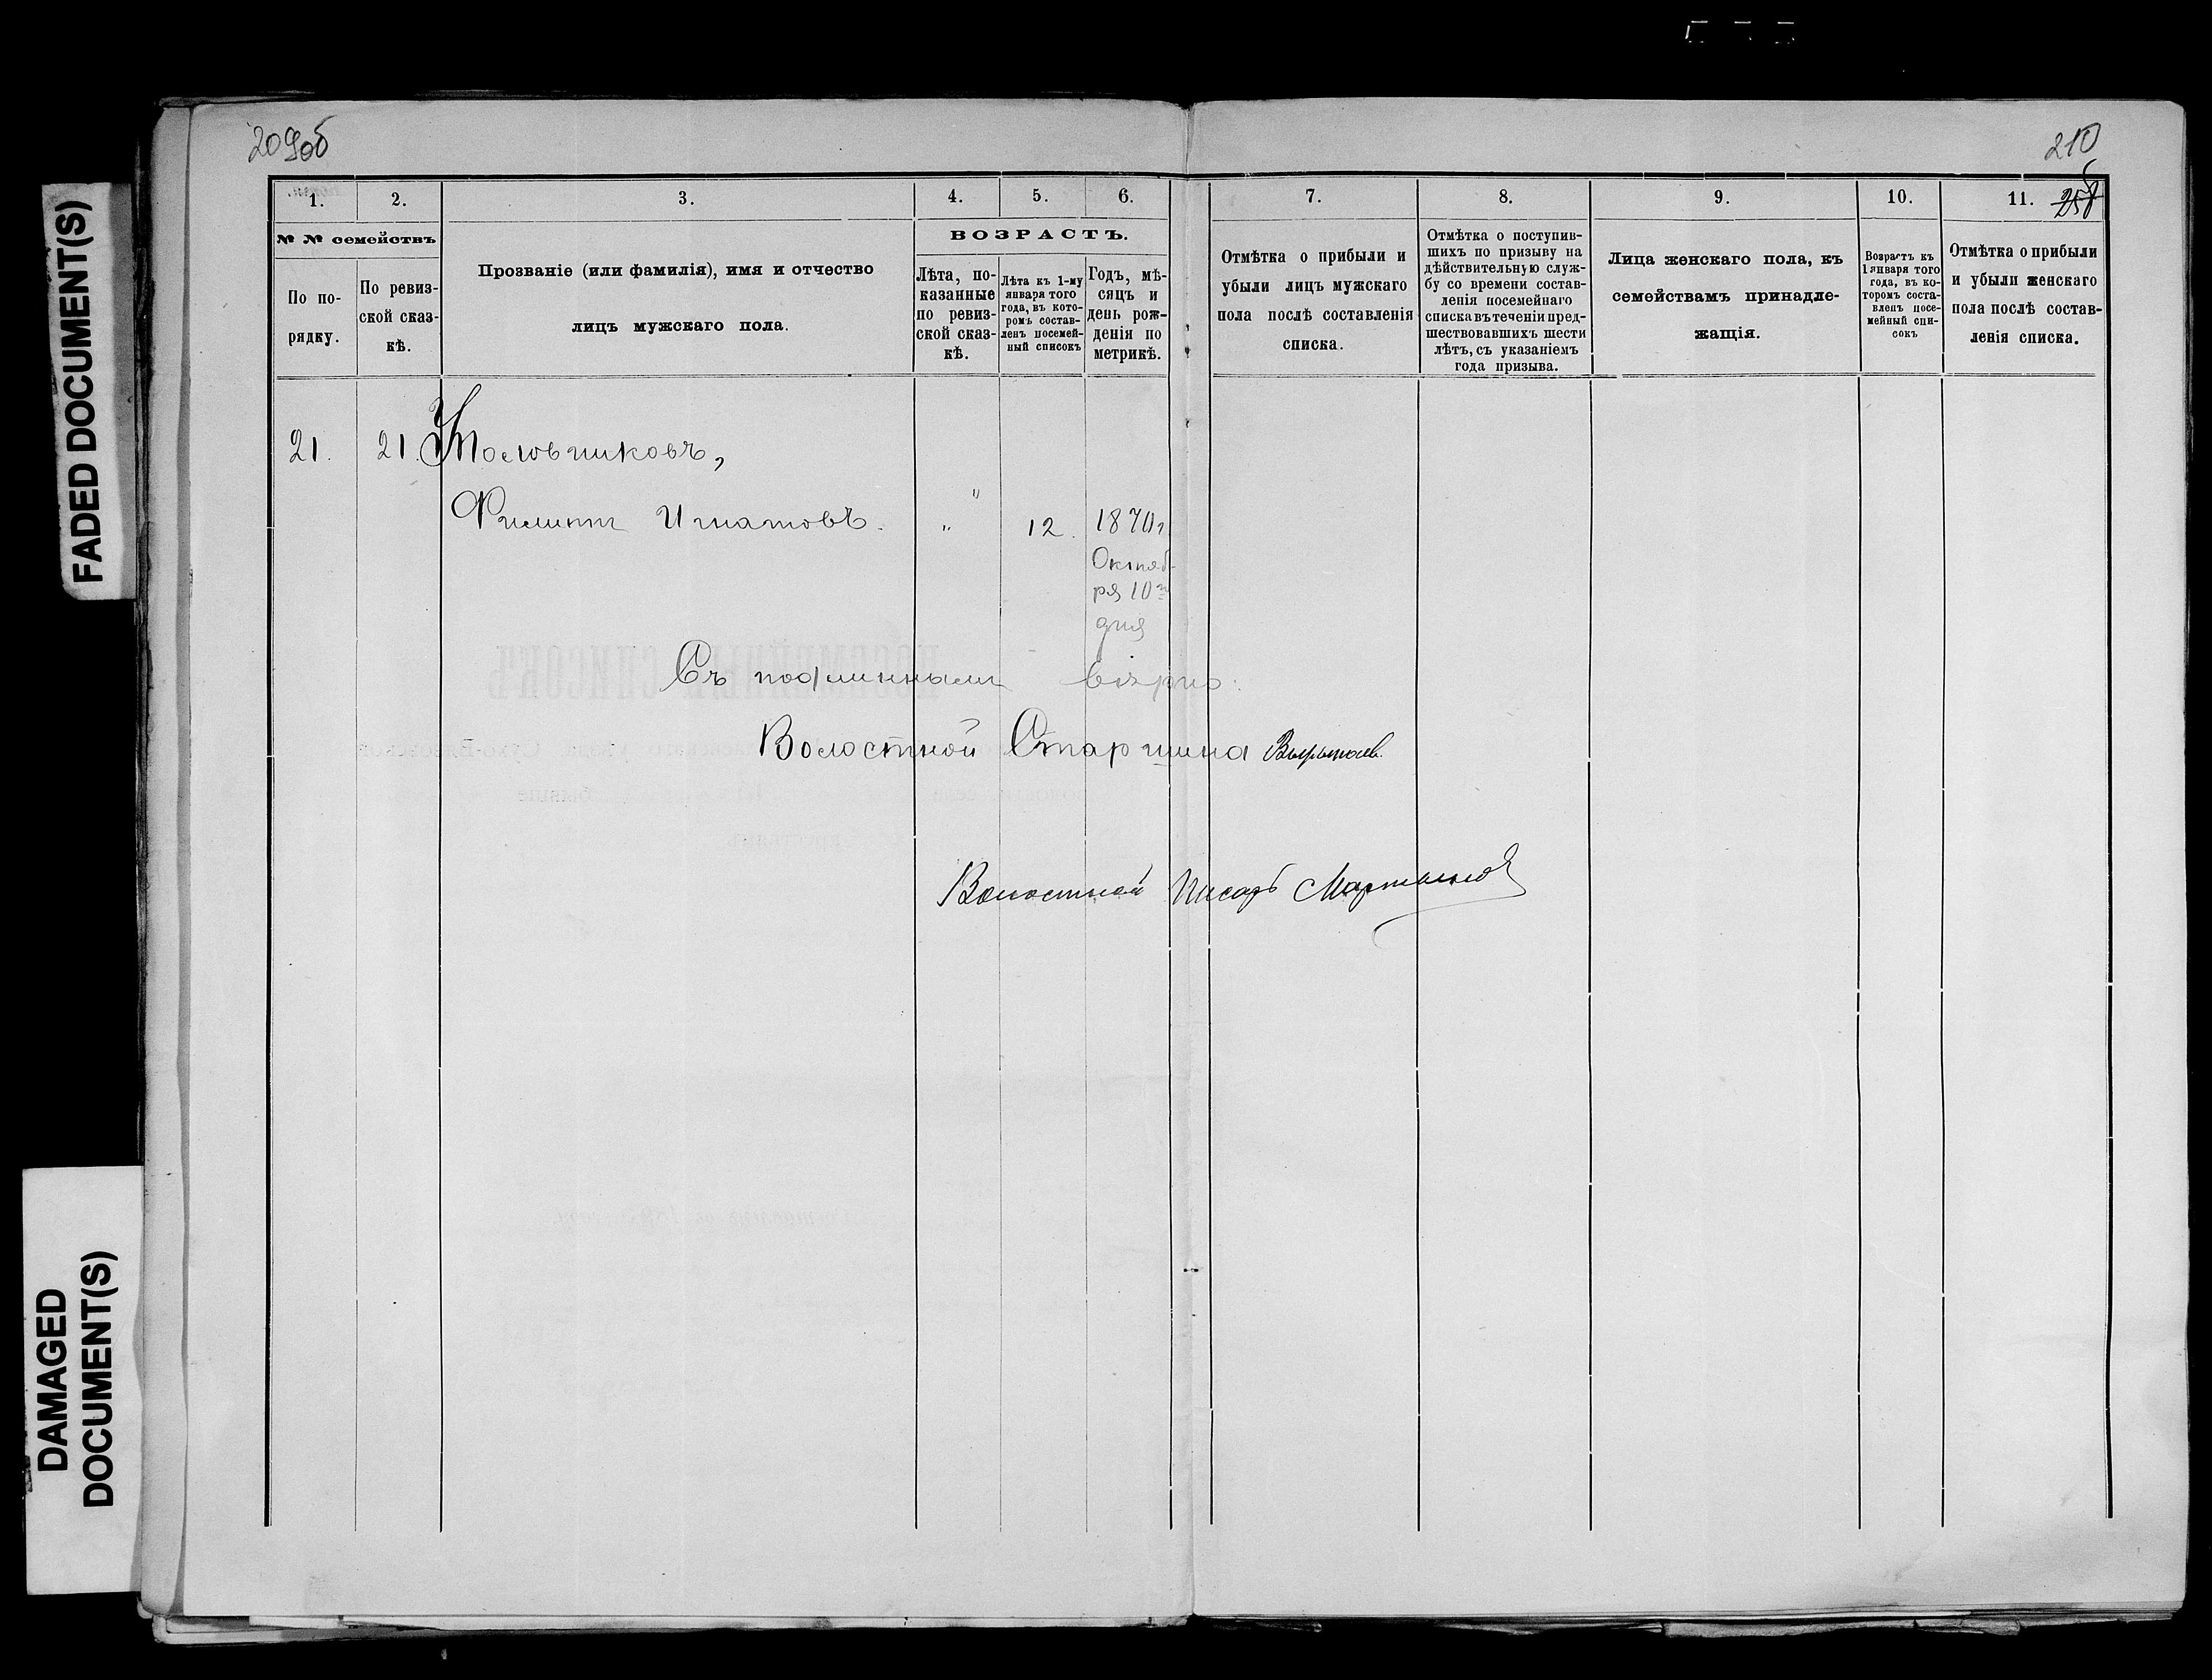 209об
210
1.
2.
3.
4.
5.
6.
7.
8.
9.
10.
11.
№ № семействъ
По по-
рядку.
По ревиз-
ской сказ-
кѣ.
Прозваніе (или фамилія), имя и отчество
лицъ мужскаго пола.
ВОЗРАСТЪ.
Лѣта, по-
казанные
по ревиз-
ской сказ-
кѣ.
Лѣта къ 1-му
января того
года, въ кото-
ромъ состав-
ленъ посемей-
ный списокъ
Годъ, мѣ-
сяцъ и
день рож-
денія по
метрикѣ.
Отмѣтка о прибыли и
убыли лицъ мужскаго
пола послѣ составленія
списка.
Отмѣтка о поступив-
шихъ по призыву на
дѣйствительную служ-
бу со времени состав-
ленія посемейнаго
списка въ теченіи пред-
шествовавшихъ шести
лѣтъ, съ указаніемъ
года призыва.
Лица женскаго пола, къ
семействамъ принадле-
жащія.
Возрастъ къ
1 января того
года, въ ко-
торомъ соста-
вленъ посе-
мейный спи-
сокъ
Отмѣтка о прибыли
и убыли женскаго
пола послѣ состав-
ленія списка.
21.
21.
Филиппъ Игнатовъ. " 12. 1870 г.
Октяб-
ря 10го
дня
Съ подлиннымъ вѣрно:
Волостной Старшина
Волостной Писарь Мартынов
FADED DOCUMENT(S)
DAMAGED
DOCUMENT(S)